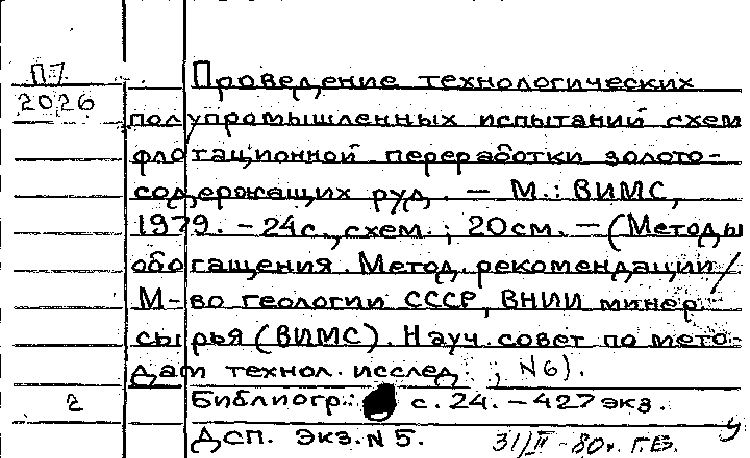 П7
2026
Проведение технологических
полупромышленных испытаний схем
флотационной переработки золото-
содержащих руд. — М.: ВИМС,
1979. - 24с., схем.; 20см. — (Методы
обогащения. Метод. рекомендации /
М-во геологии СССР, ВНИИ минер.
сырья (ВИМС). Науч. совет по мето-
дам технол. исслед.; N6).
2 Библиогр.: с.24. - 427 экз.
ДСП. Экз. N 5. 31/II-80г. Г.В. У